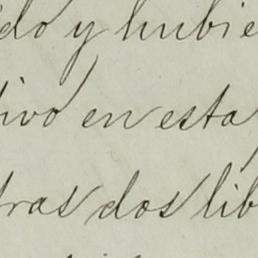 do y hubie
ivo en esta
tras dos lib